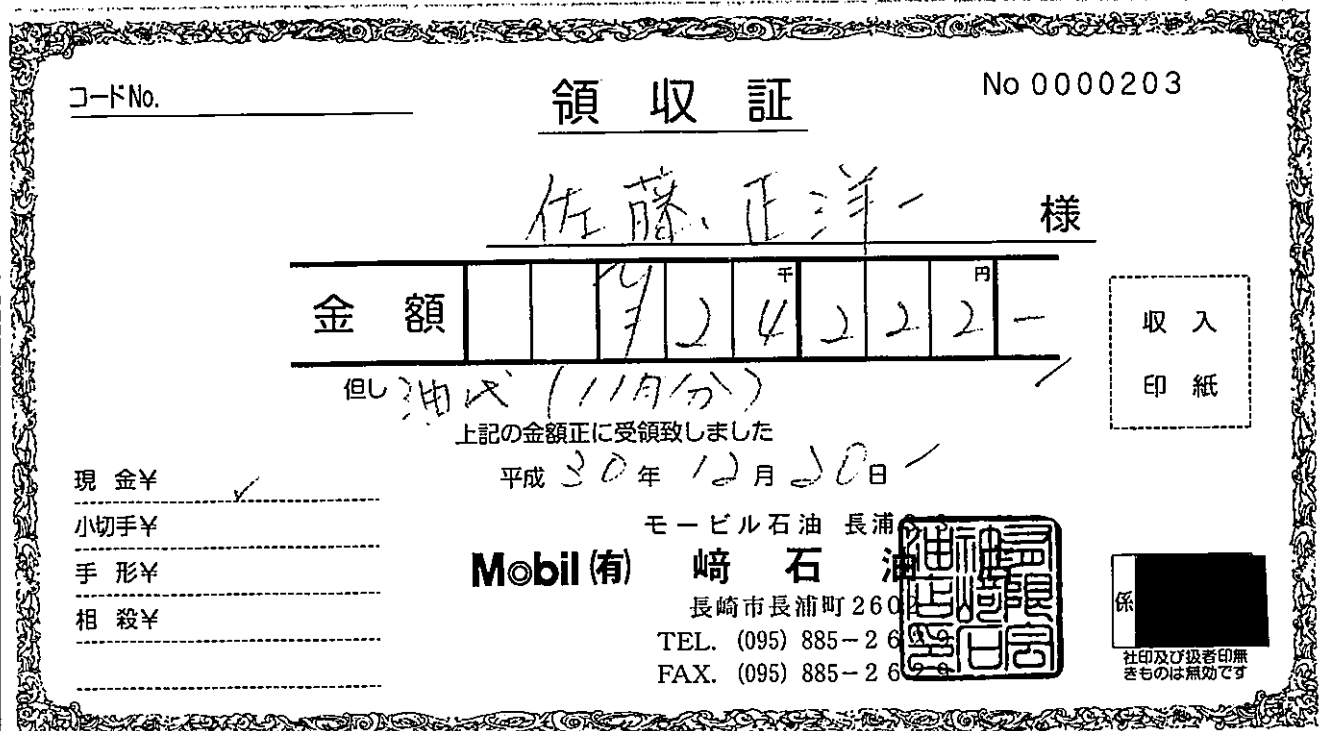 コードNo.
領収証
No 0000203
佐藤 正洋 様
金額 ¥24222-
千
円
収入
印紙
但し 油代 (11月分)
上記の金額正に受領致しました
平成 30年 12月 20日
現 金¥ ✓
小切手¥
手 形¥
相 殺¥
モービル石油 長浦
Mobil (有) 﨑 石 油
長崎市長浦町2602
TEL. (095) 885-26
FAX. (095) 885-2629
係
社印及び扱者印無
きものは無効です